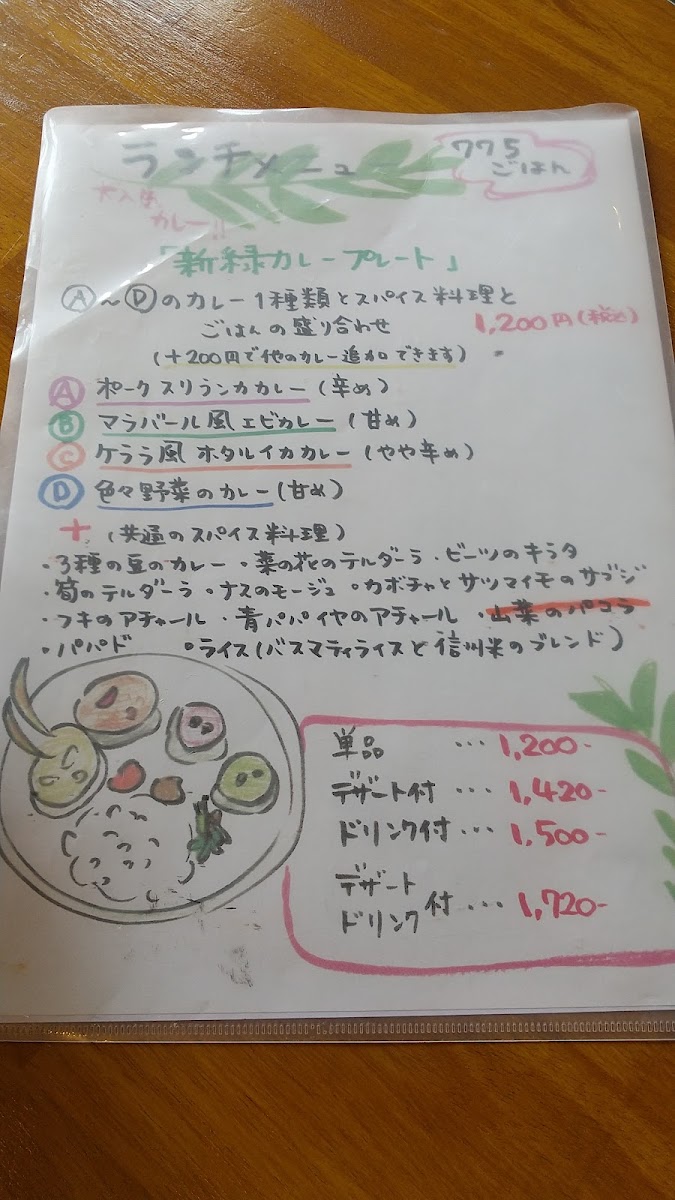 ランチメニュー
775
ごはん
大人気
カレー!!
「新緑カレープレート」
Ⓐ～Ⓓのカレー1種類とスパイス料理と
ごはんの盛り合わせ
1,200円(税込)
(+200円で他のカレー追加できます)
Ⓐ ポークスリランカカレー(辛め)
Ⓑ マラバール風エビカレー(甘め)
Ⓒ ケララ風ホタルイカカレー(やや辛め)
Ⓓ 色々野菜のカレー(甘め)
+ (共通のスパイス料理)
・3種の豆のカレー ・菜の花のテルダーラ ・ビーツのキラタ
・筍のテルダーラ ・ナスのモージュ ・カボチャとサツマイモのサブジ
・フキのアチャール ・青パパイヤのアチャール ・山菜のパコラ
・パパド ・ライス(バスマティライスと信州米のブレンド)
単品 … 1,200-
デザート付 … 1,420-
ドリンク付 … 1,500-
デザート
ドリンク 付 … 1,720-